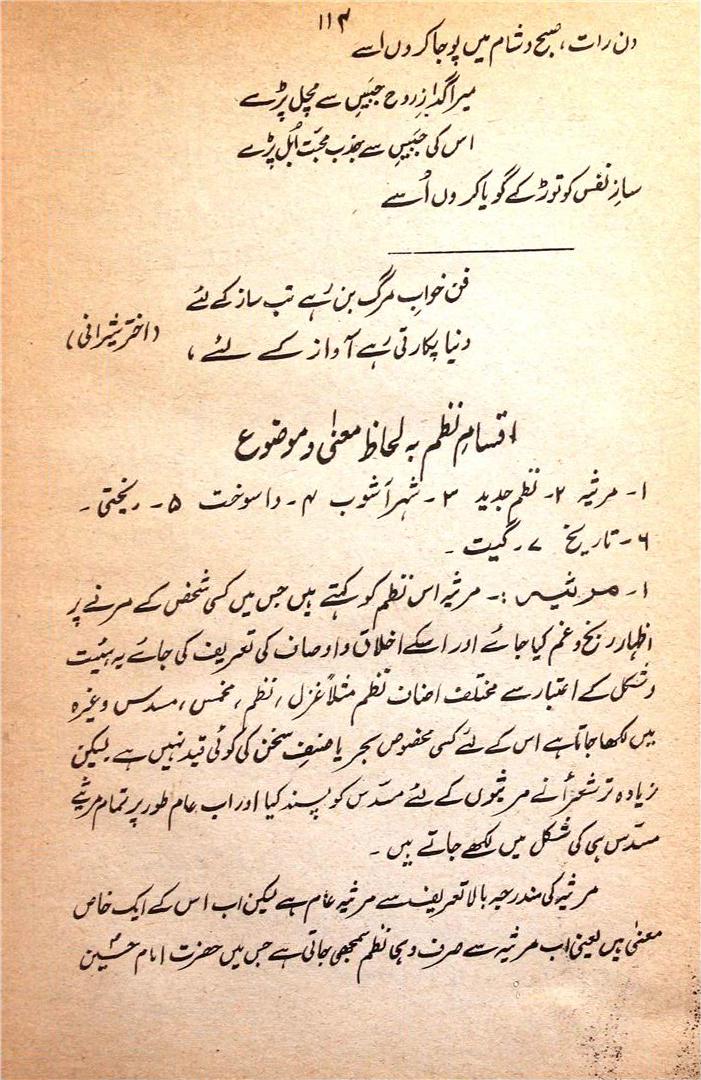 ۱۱۴
دن رات، صبح و شام میں پوجا کروں اسے
میرا گدازِ روح جبیں سے مچل پڑے
اس کی جبیں سے جذب محبت اُبل پڑے
سازِ نفس کو توڑ کے گویا کروں اُسے
فن خوابِ مرگ بن رہے تب ساز کے لئے
دنیا پکارتی رہے آواز کے لئے، (اختر شیرانی)
اقسامِ نظم بہ لحاظ معنیٰ و موضوع
۱۔ مرثیہ ۲۔ نظم جدید ۳۔ شہر آشوب ۴۔ واسوخت ۵۔ ریختی۔
۶۔ تاریخ ۷۔ گیت۔
۱۔ مرثیہ :۔ مرثیہ اس نظم کو کہتے ہیں جس میں کسی شخص کے مرنے پر
اظہار رنج و غم کیا جائے اور اسکے اخلاق و اوصاف کی تعریف کی جائے یہ ہیئت
و شکل کے اعتبار سے مختلف اصناف نظم مثلاً غزل، نظم، مخمس، مسدس وغیرہ
میں لکھا جاتا ہے اس کے لئے کسی مخصوص بحر یا صنفِ سخن کی کوئی قید نہیں ہے لیکن
زیادہ تر شعرأ نے مرثیوں کے لئے مسدّس کو پسند کیا اور اب عام طور پر تمام مرثیے
مسدّس ہی کی شکل میں لکھے جاتے ہیں۔
مرثیہ کی مندرجہ بالا تعریف سے مرثیہ عام ہے لیکن اب اس کے ایک خاص
معنیٰ ہیں یعنی اب مرثیہ سے صرف وہی نظم سمجھی جاتی ہے جس میں حضرت امام حسینؑ